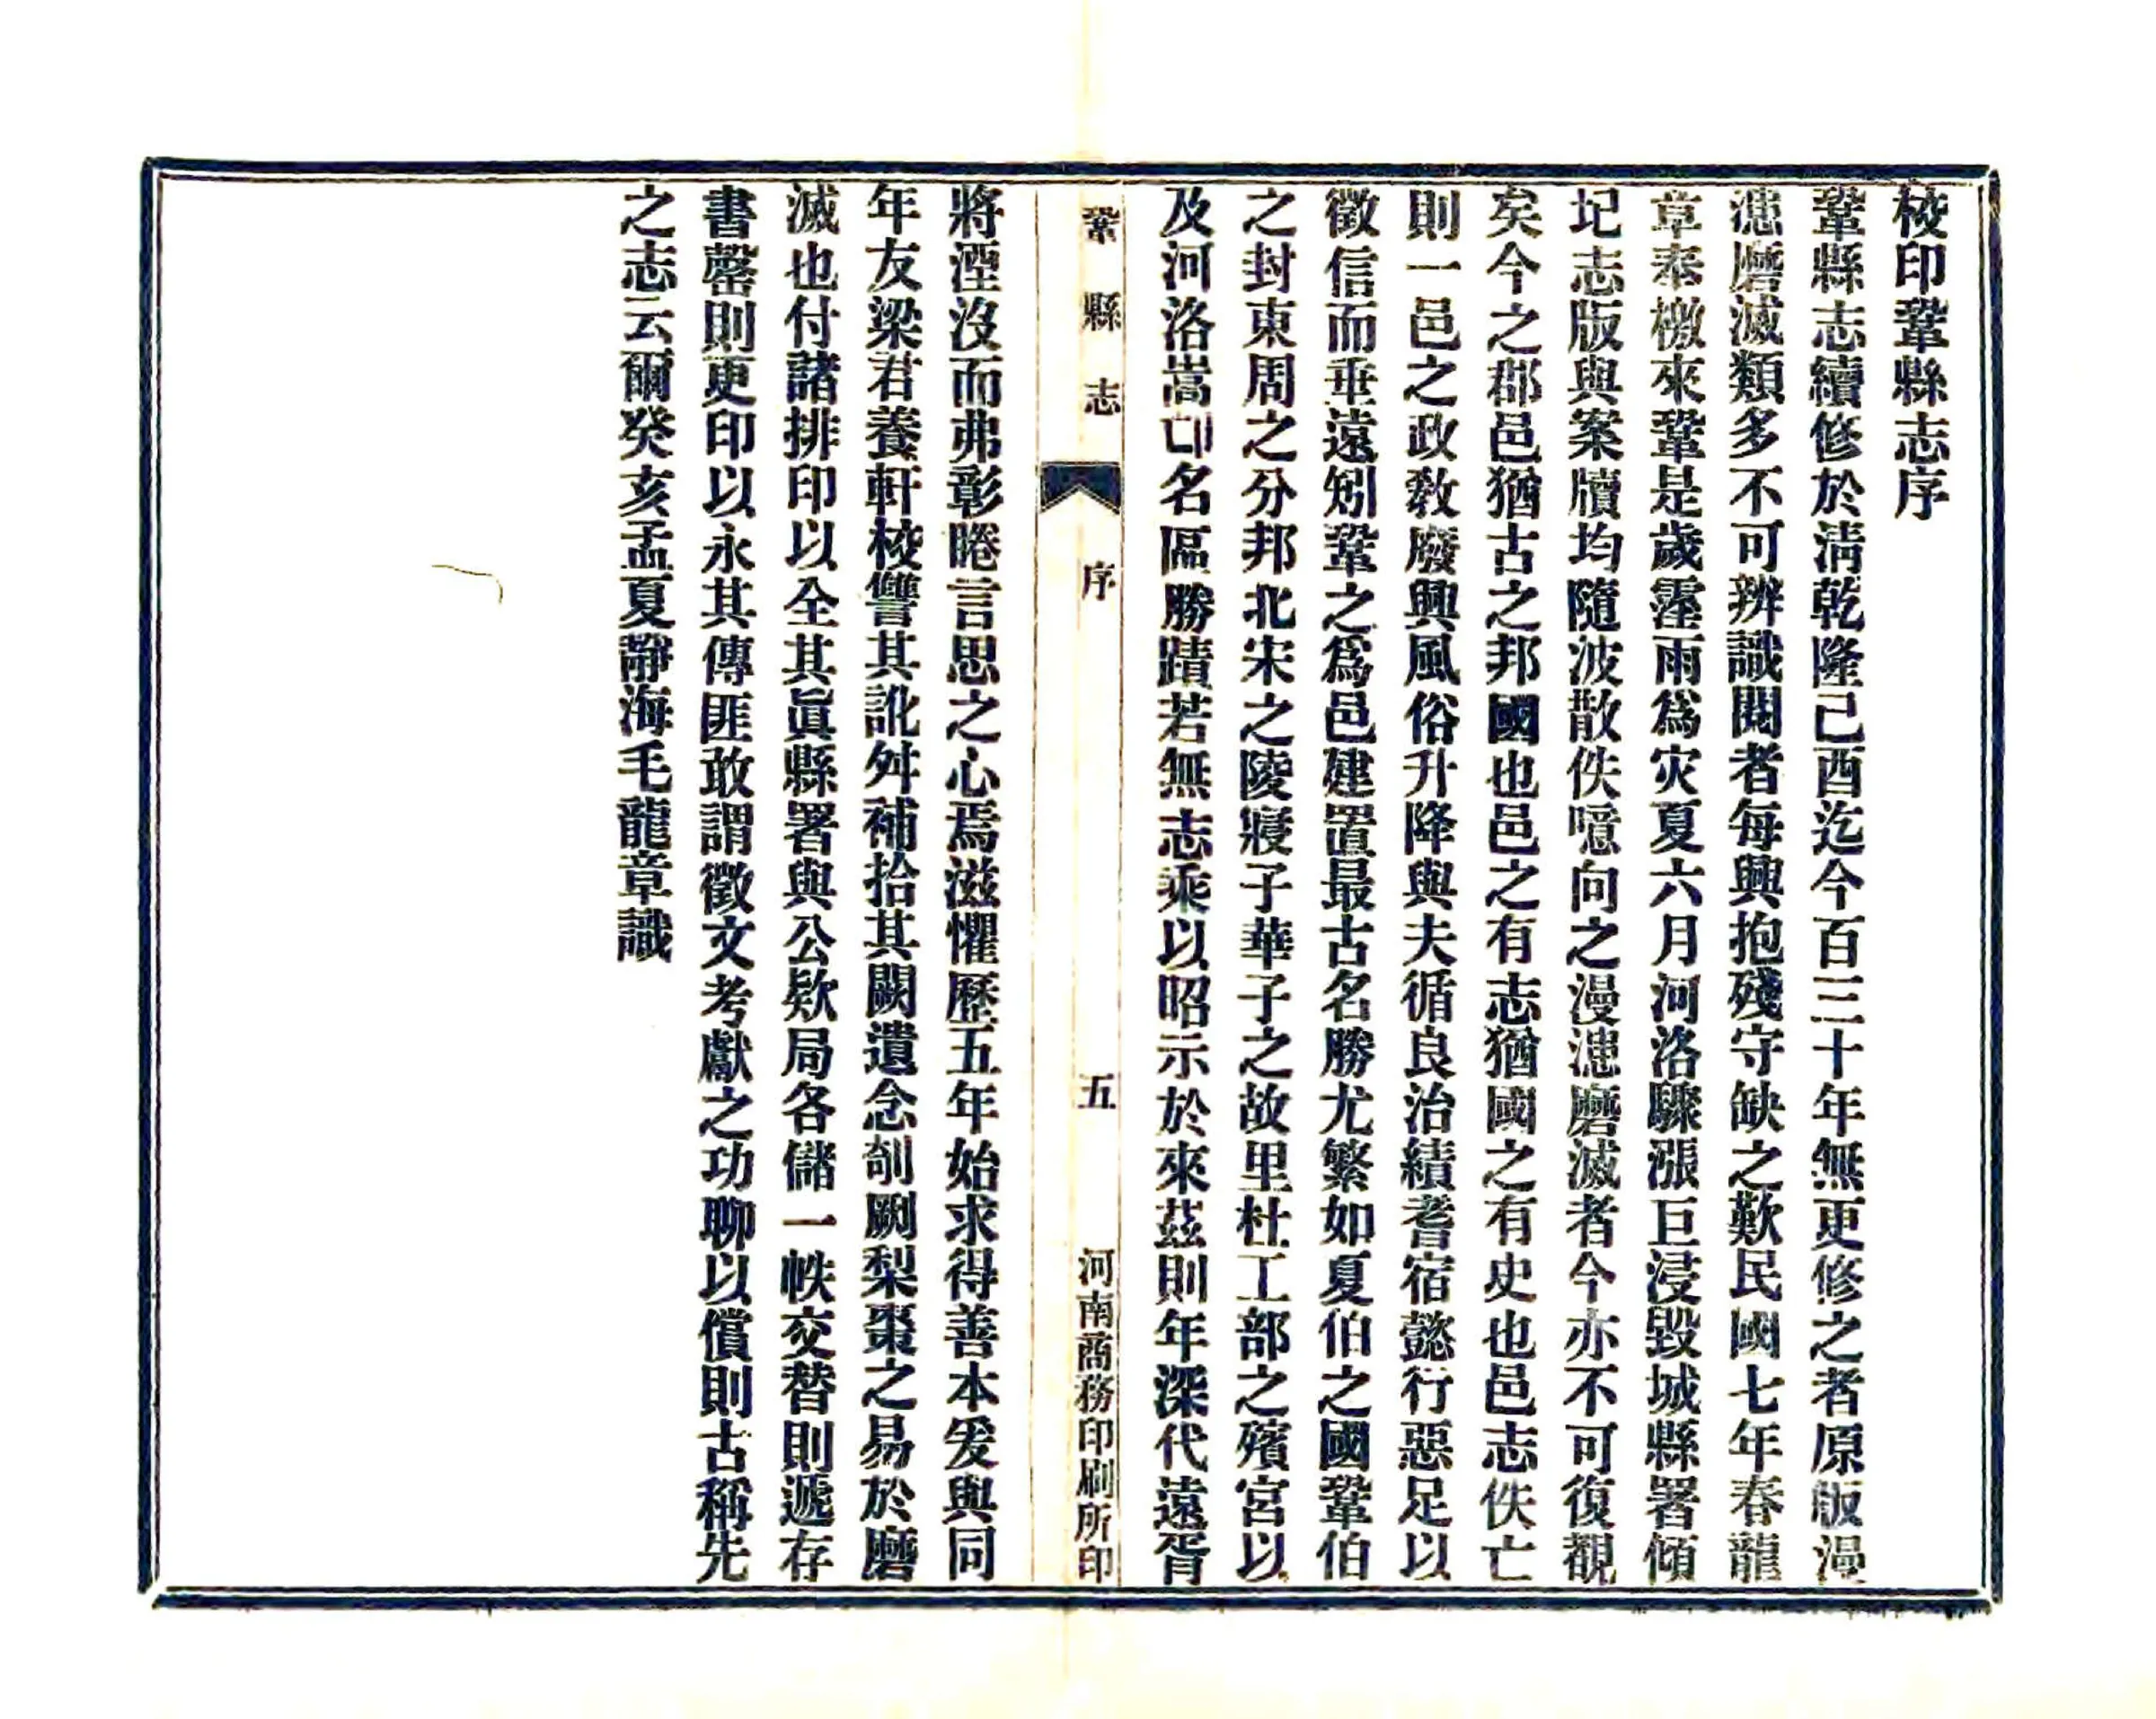 校印鞏縣志序
鞏縣志續修於淸乾隆己酉迄今百三十年無更修之者原版漫
漶磨滅類多不可辨識閱者每興抱殘守缺之歎民國七年春龍
章奉檄來鞏是歲霪雨爲灾夏六月河洛驟漲巨浸毀城縣署傾
圮志版與案牘均隨波散佚噫向之漫漶磨滅者今亦不可復覩
矣今之郡邑猶古之邦國也邑之有志猶國之有史也邑志佚亡
則一邑之政敎廢興風俗升降與夫循良治績耆宿懿行惡足以
徵信而垂遠矧鞏之爲邑建置最古名勝尤繁如夏伯之國鞏伯
之封東周之分邦北宋之陵寢子華子之故里杜工部之殯宮以
及河洛嵩邙名區勝蹟若無志乘以昭示於來茲則年深代遠胥
鞏縣志
序
五
河南商務印刷所印
將湮沒而弗彰睠言思之心焉滋懼歷五年始求得善本爰與同
年友梁君養軒校讐其訛舛補拾其闕遺念剞劂梨棗之易於磨
滅也付諸排印以全其眞縣署與公欵局各儲一帙交替則遞存
書罄則更印以永其傳匪敢謂徵文考獻之功聊以償則古稱先
之志云爾癸亥孟夏靜海毛龍章識